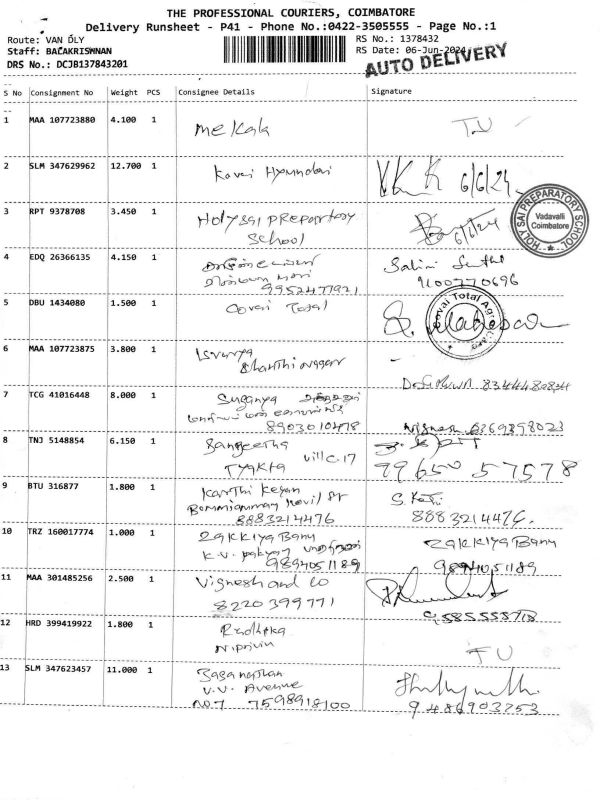 THE PROFESSIONAL COURIERS, COIMBATORE
Delivery Runsheet - P41 - Phone No.:0422-3505555 - Page No.:1
Route: VAN DLY
RS No.: 1378432
Staff: BALAKRISHNAN
RS Date: 06-Jun-2024
DRS No.: DCJB137843201
AUTO DELIVERY
S No Consignment No Weight PCS Consignee Details Signature
1 MAA 107723880 4.100 1 Mekala T.U
2 SLM 347629962 12.700 1 Kovai Hyundai 6/6/24
3 RPT 9378708 3.450 1 Holy Sai Prepartory 6/6/24
School
HOLY SAI PREPARATORY SCHOOL
Vadavalli
Coimbatore
4 EDQ 26366135 4.150 1 Salini
9952477921 9100770696
5 DBU 1434080 1.500 1 Covai Total
6 MAA 107723875 3.800 1 Isvarya
Shanthi nagar
8344480834
7 TCG 41016448 8.000 1 Suganya
8903010478 Vignesh 6369398023
8 TNJ 5148854 6.150 1 Sangeetha
Vill C.17 99650 57578
9 BTU 316877 1.800 1 Karthi Keyan
Bommianman Kovil St
8883214476 8883214476.
10 TRZ 160017774 1.000 1 Zakkiya Banu Zakkiya Banu
9894051189 9894051189
11 MAA 301485256 2.500 1 Vignesh and Co
8220399771
12 HRD 399419922 1.800 1 Radhika
13 SLM 347623457 11.000 1 Jaganathan
V.V. Avenue
No.7 7598918100 9486903253